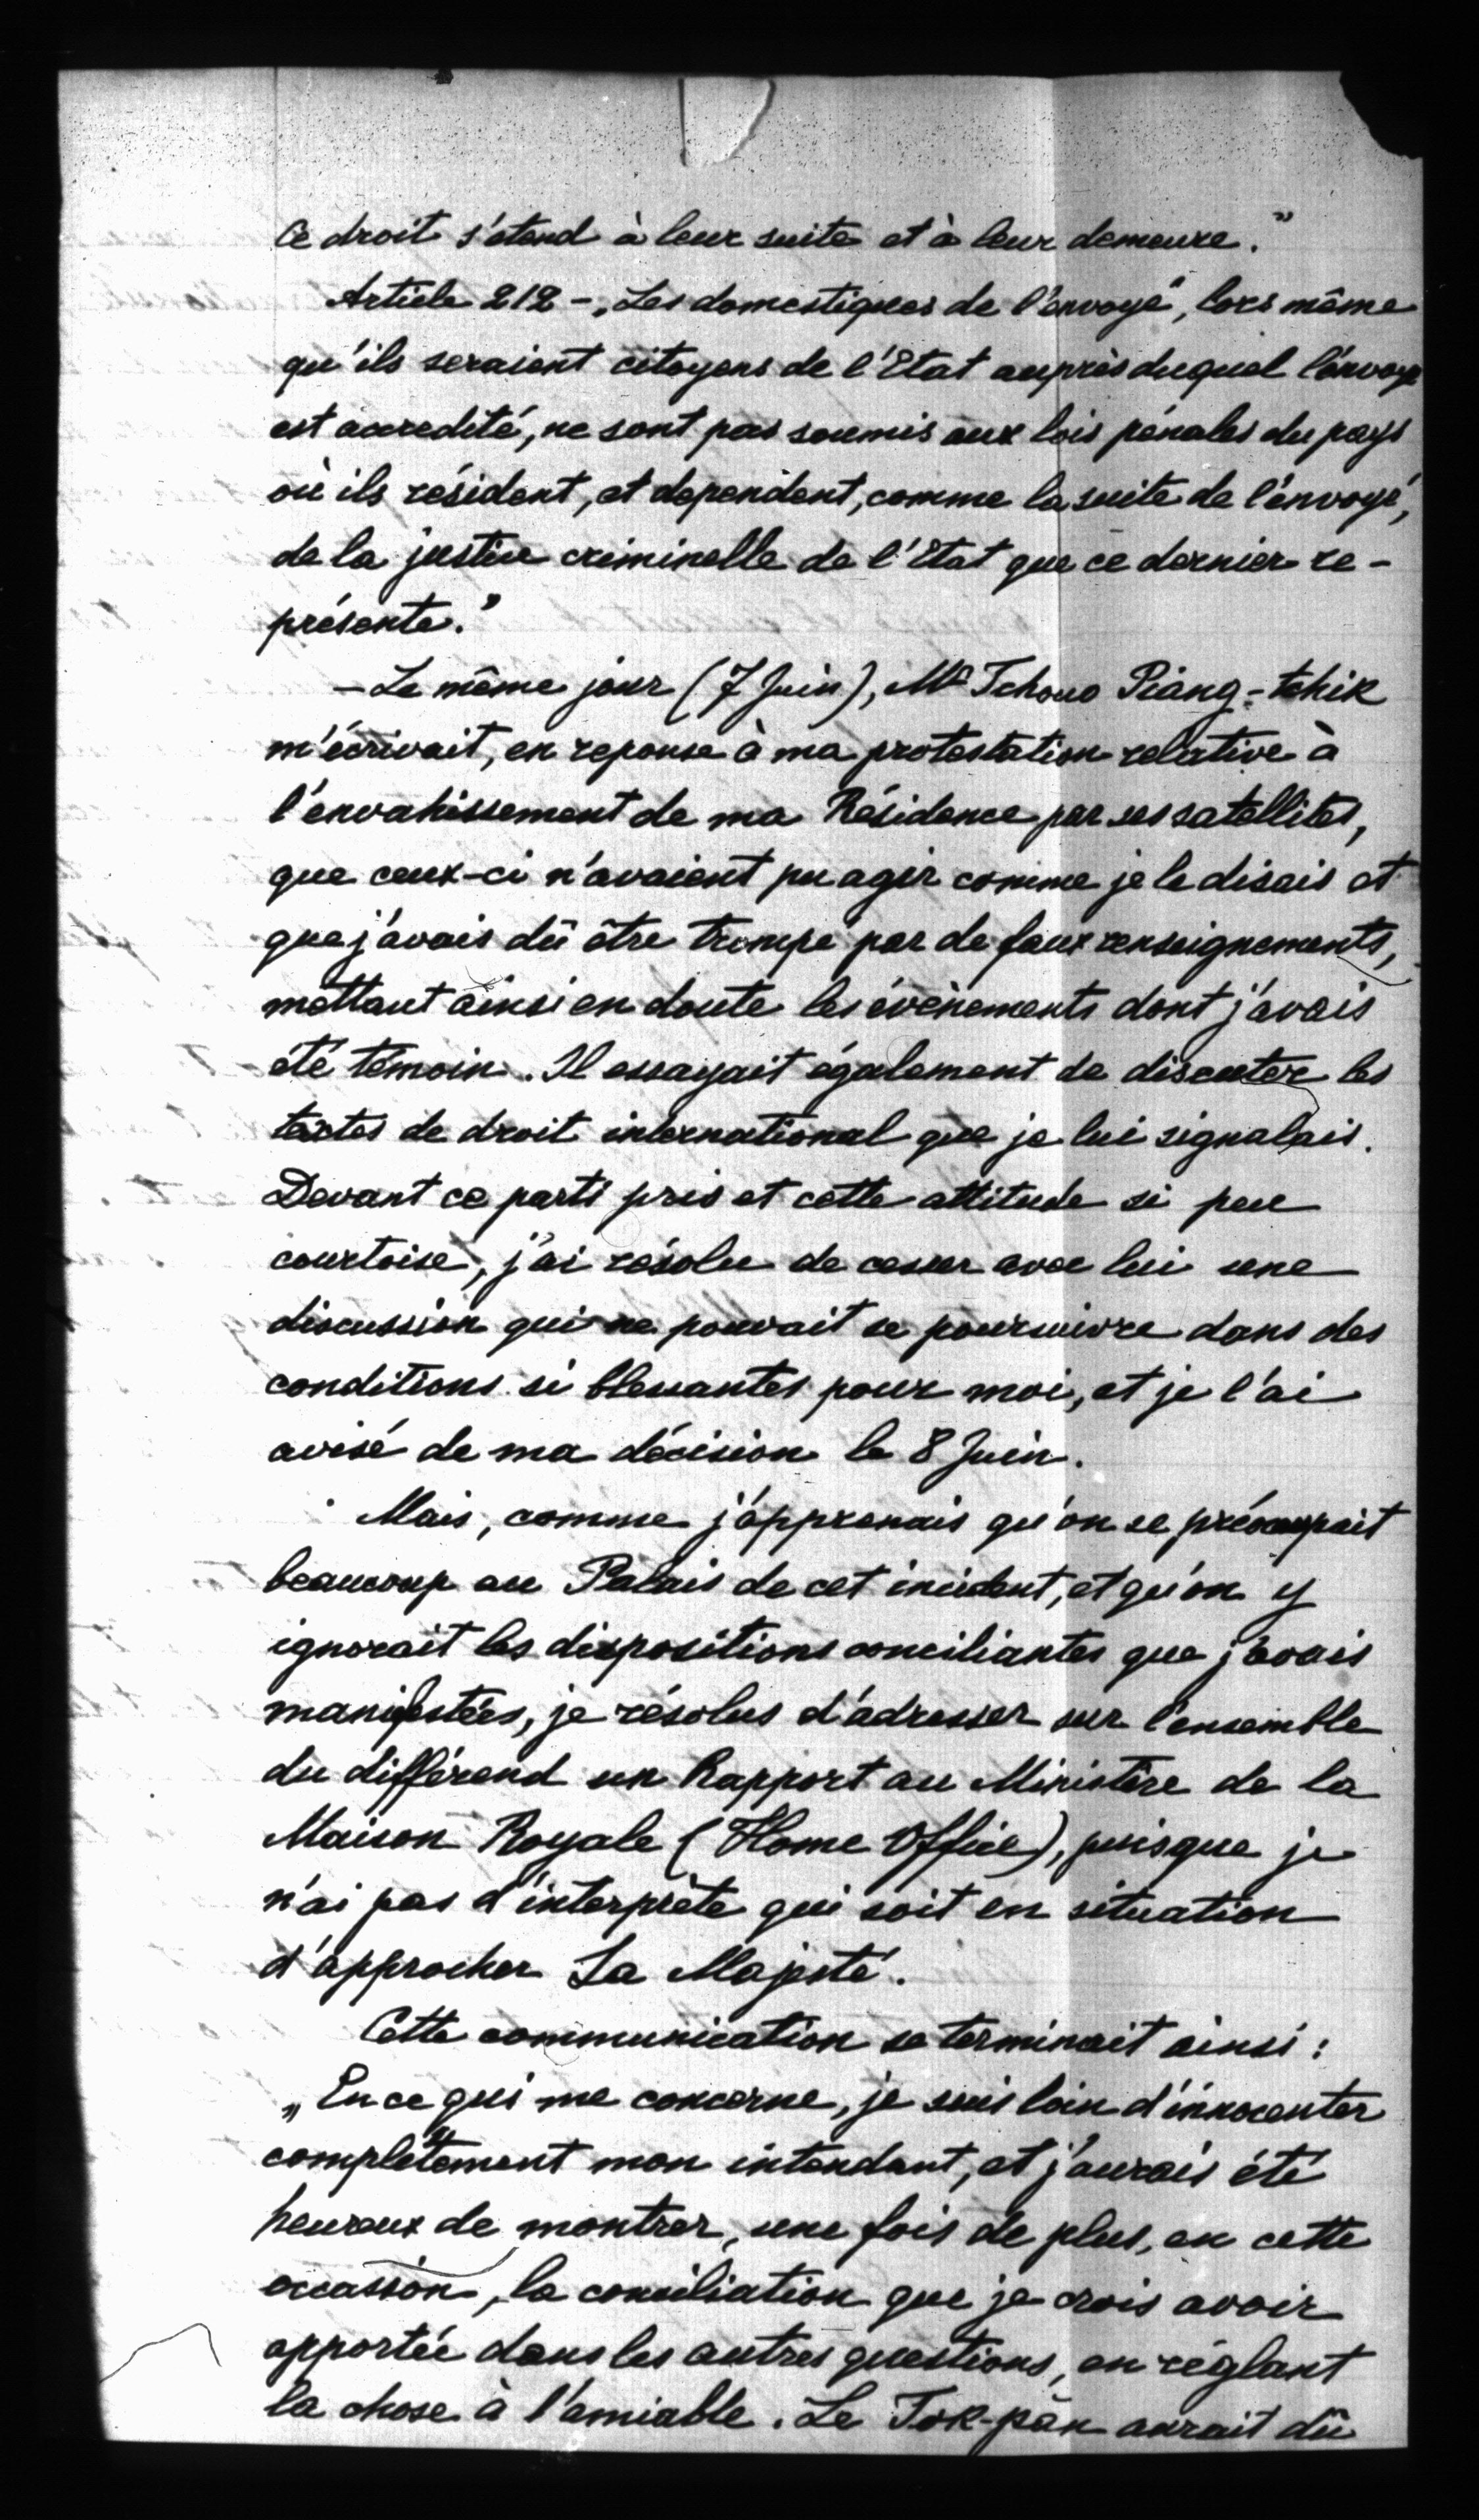 Ce droit s'étend à leur suite et à leur demeure."
Article 212 – „Les domestiques de l'envoyé, lors même
qu'ils seraient citoyens de l'Etat auprès duquel l'envoyé
est accredité, ne sont pas soumis aux lois pénales du pays
où ils résident, et dependent, comme la suite de l'envoyé,
de la justice criminelle de l'Etat que ce dernier re-
présente."
– Le même jour (7 Juin), Mr Tchouo Piang-tchik
m'écrivait, en reponse à ma protestation relative à
l'envahissement de ma Résidence par ses satellites,
que ceux-ci n'avaient pu agir comme je le disais et
que j'avais dû être trompé par de faux renseignements,
mettant ainsi en doute les évènements dont j'avais
été témoin. Il essayait également de discuter les
textes de droit international que je lui signalais.
Devant ce parti pris et cette attitude si peu
courtoise, j'ai résolu de cesser avec lui une
discussion qui ne pouvait se poursuivre dans des
conditions si blessantes pour moi, et je l'ai
avisé de ma décision le 8 Juin.
Mais, comme j'apprenais qu'on se préoccupait
beaucoup au Palais de cet incident, et qu'on y
ignorait les dispositions conciliantes que j'avais
manifestées, je résolus d'adresser sur l'ensemble
du différend un Rapport au Ministère de la
Maison Royale (Home Office), puisque je
n'ai pas d'interprète qui soit en situation
d'approcher Sa Majesté.
Cette communication se terminait ainsi :
„En ce qui me concerne, je suis loin d'innocenter
complètement mon intendant, et j'aurais été
heureux de montrer, une fois de plus, en cette
occasion, la conciliation que je crois avoir
apportée dans les autres questions, en réglant
la chose à l'amiable. Le Tok-pan aurait dû